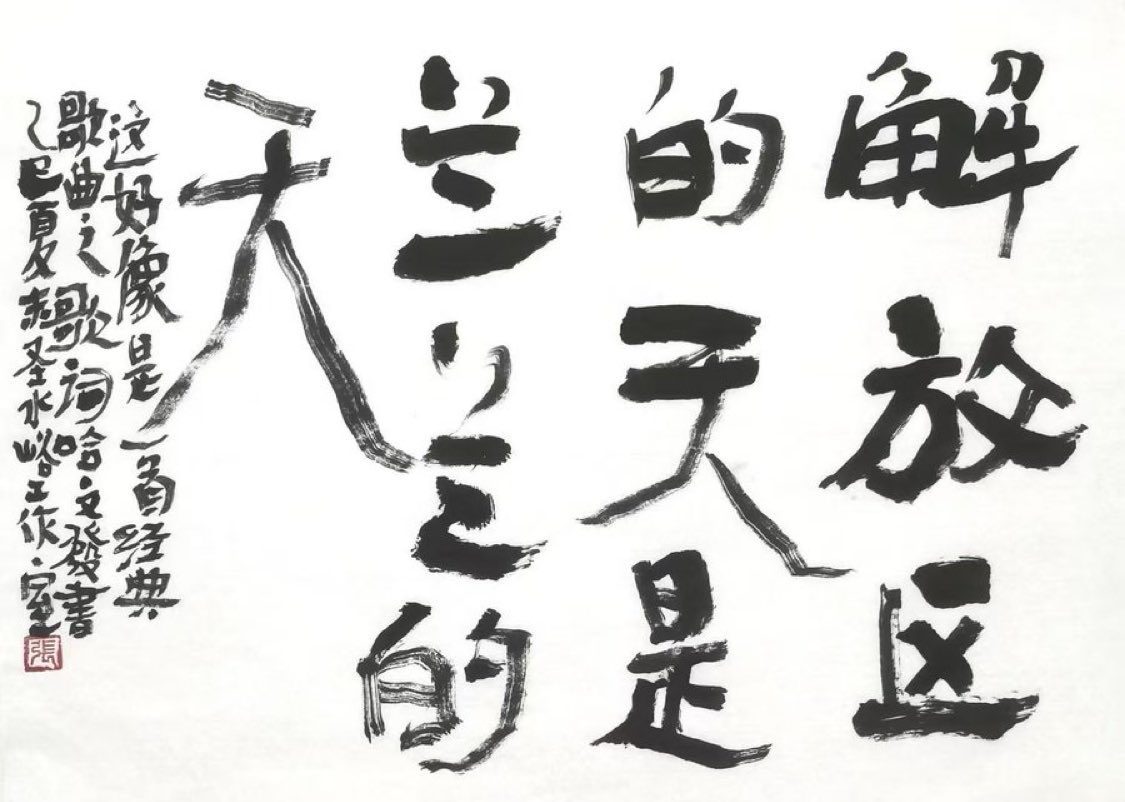 解放区
的天是
兰兰的
天
这好像是一首经典
歌曲之歌词哈文發書
乙巳夏圣水峪工作室
張